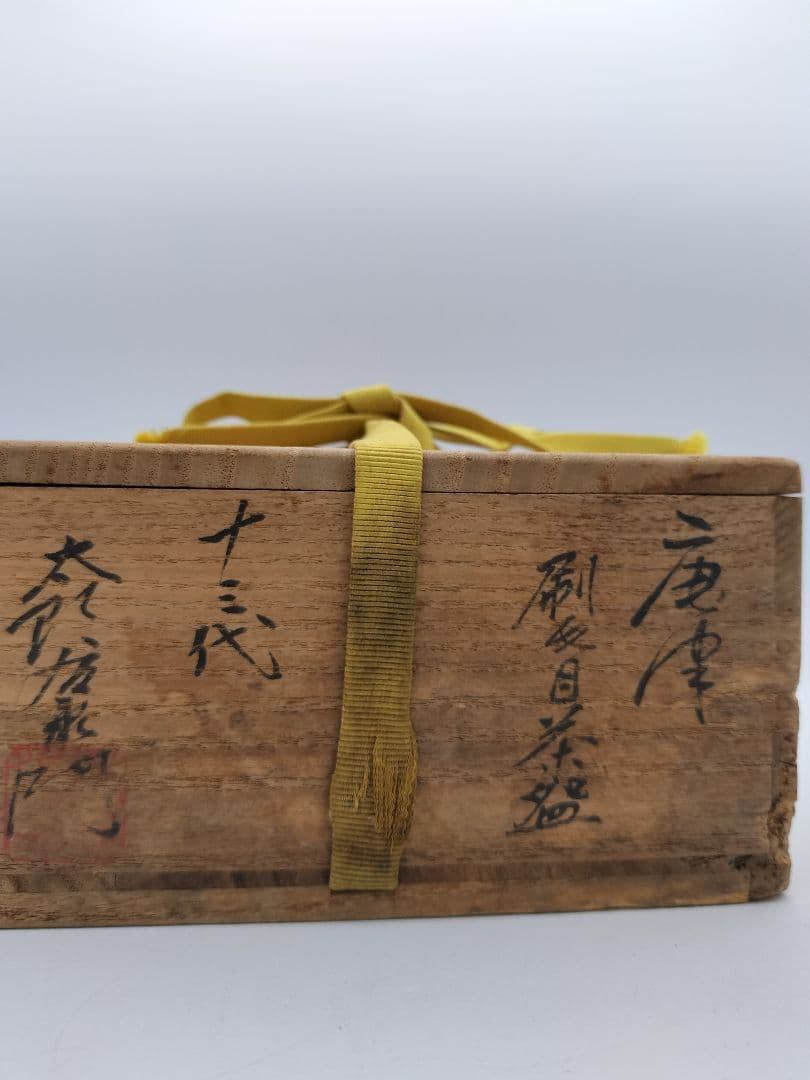 二唐津
刷毛目茶盌
十三代
太郎右衛門